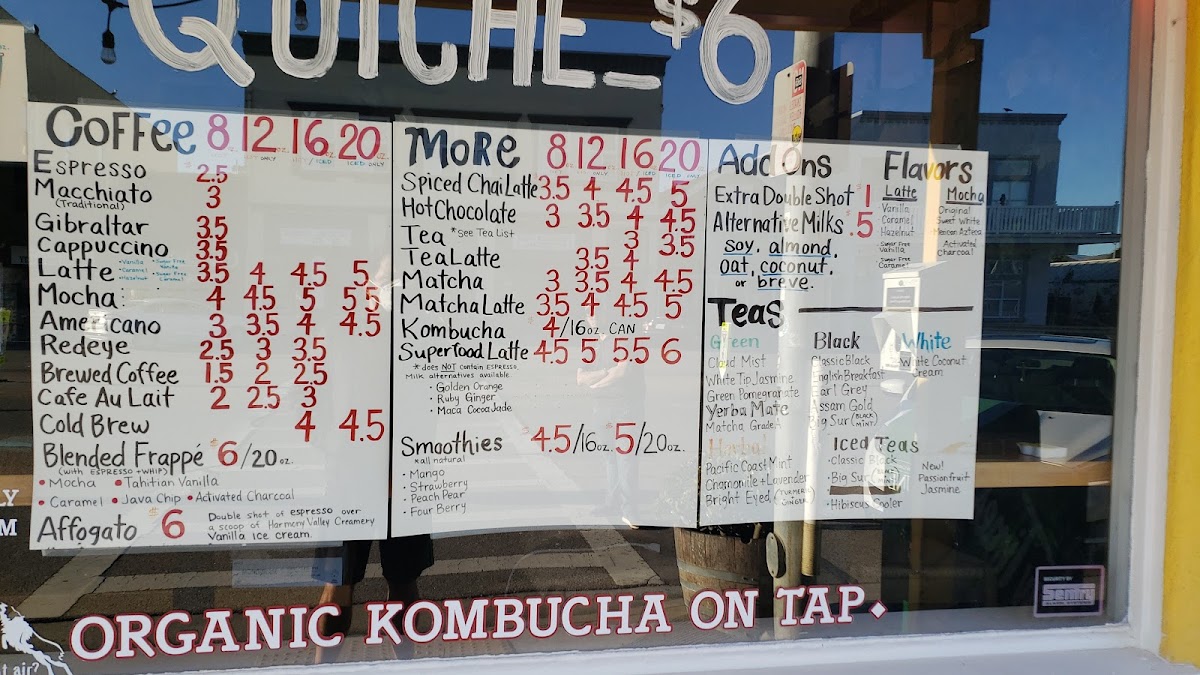 QUICHE - $6
Coffee 8 12 16 20
Espresso 2.5
Macchiato 3
(Traditional)
Gibraltar 3.5
Cappuccino 3.5
Latte 3.5 4 4.5 5
• Vanilla • Sugar Free Vanilla
• Caramel • Sugar Free Caramel
• Hazelnut
Mocha: 4 4.5 5 5.5
Americano 3 3.5 4 4.5
Redeye 2.5 3 3.5
Brewed Coffee 1.5 2 2.5
Cafe Au Lait 2 2.5 3
Cold Brew 4 4.5
Blended Frappé $6/20oz.
(WITH ESPRESSO + WHIP)
• Mocha • Tahitian Vanilla
• Caramel • Java Chip • Activated Charcoal
Affogato $6 Double shot of espresso over
a scoop of Harmony Valley Creamery
Vanilla ice cream.
More 8 12 16 20
ICED ONLY
Spiced Chai Latte 3.5 4 4.5 5
Hot Chocolate 3 3.5 4 4.5
Tea *see Tea List 3 3.5
Tea Latte 3.5 4
Matcha 3 3.5 4 4.5
Matcha Latte 3.5 4 4.5 5
Kombucha 4/16oz. CAN
Superfood Latte 4.5 5 5.5 6
*does NOT contain ESPRESSO.
Milk alternatives available.
• Golden Orange
• Ruby Ginger
• Maca Cocoa Jade
Smoothies 4.5/16oz. $5/20oz.
*all natural
• Mango
• Strawberry
• Peach Pear
• Four Berry
Add Ons
Extra Double Shot $1
Alternative Milks $.5
soy, almond,
oat, coconut,
or breve.
Flavors
Latte
Vanilla
Caramel
Hazelnut
• Sugar Free
Vanilla
• Sugar Free
Caramel
Mocha
Original
Sweet White
Mexican Azteca
Activated
Charcoal
Teas
Green
Cloud Mist
White Tip Jasmine
Green Pomegranate
Yerba Mate
Matcha Grade A
Herbal
Pacific Coast Mint
Chamomile + Lavender
Bright Eyed (TURMERIC GINGER)
Black
Classic Black
English Breakfast
Earl Grey
Assam Gold
Big Sur (BLACK MINT)
White
White Coconut
Cream
Iced Teas
• Classic Black
• Big Sur
• Hibiscus Cooler
New!
Passionfruit
Jasmine
ORGANIC KOMBUCHA ON TAP
t air?